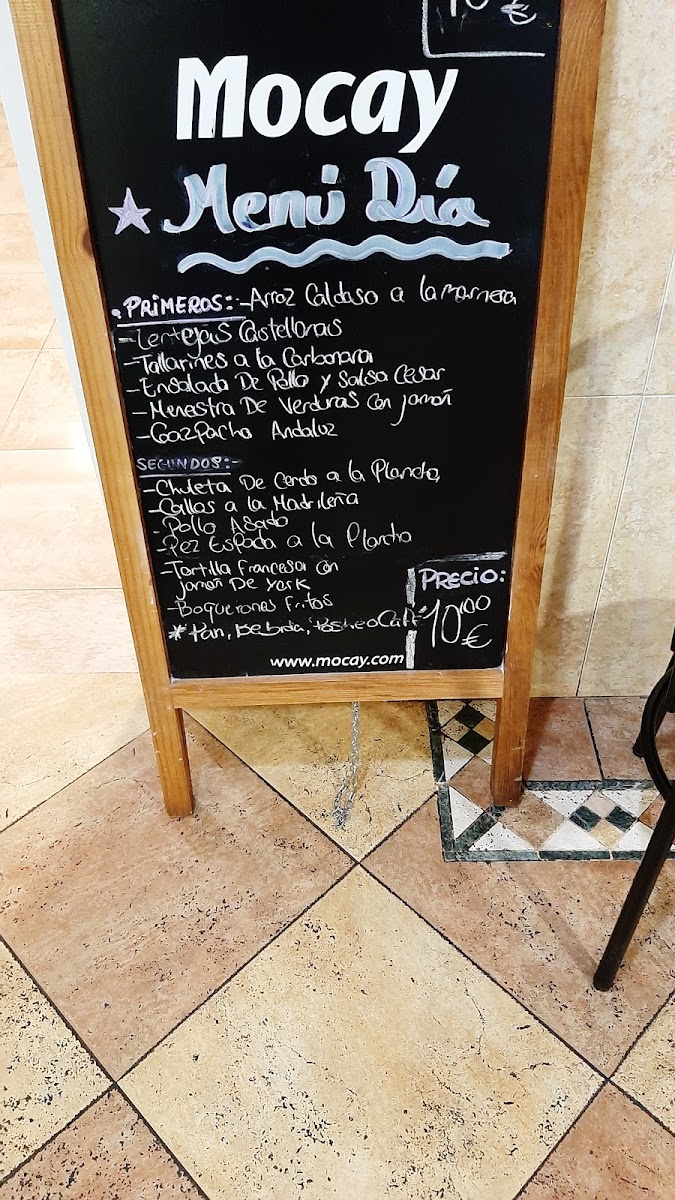 10 €
Mocay
Menú Día
PRIMEROS:-Arroz Caldoso a la marinera
-Lentejas Castellanas
-Tallarines a la Carbonara
-Ensalada De Pollo y Salsa Cesar
-Menestra De Verduras con jamón
-Gazpacho Andaluz
SEGUNDOS:-
-Chuleta De Cerdo a la Plancha
-Callos a la Madrileña
-Pollo Asado
-Pez Espada a la Plancha
-Tortilla Francesa con
jamon De York
-Boquerones Fritos
*Pan, Bebida, Postre o Café
PRECIO:
10,00
€
www.mocay.com